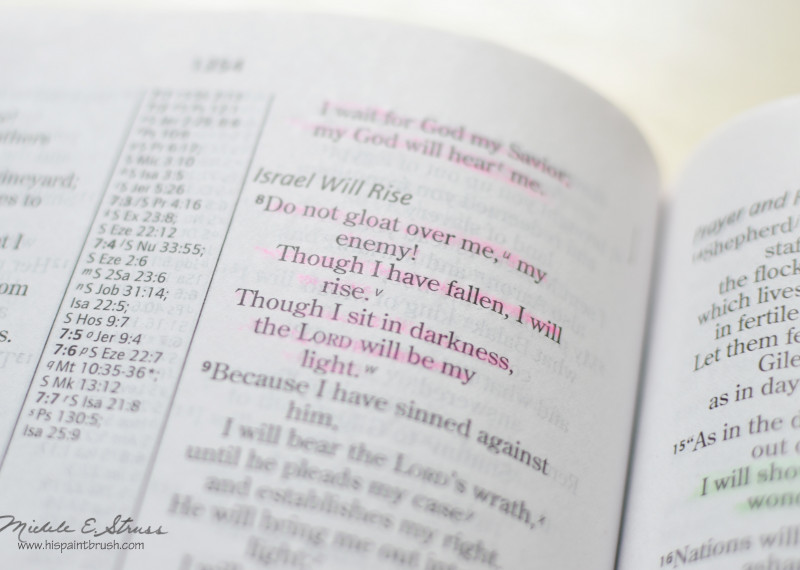 1254
ineyard;
es to
t I
om
s.
S Mic 3:10
S Isa 3:5
S Jer 5:26
7:3 S Pr 4:16
S Ex 23:8;
S Eze 22:12
7:4 S Nu 33:55;
S Eze 2:6
m S 2Sa 23:6
n S Job 31:14;
Isa 22:5;
S Hos 9:7
7:5 o Jer 9:4
7:6 p S Eze 22:7
q Mt 10:35-36*;
S Mk 13:12
7:7 r S Isa 21:8
s Ps 130:5;
Isa 25:9
I wait for God my Savior;
my God will hear t me.
Israel Will Rise
8 Do not gloat over me, u my
enemy!
Though I have fallen, I will
rise. v
Though I sit in darkness,
the LORD will be my
light. w
9 Because I have sinned against
him,
I will bear the LORD's wrath, x
until he pleads my case y
and establishes my right.
He will bring me out into
light; z
I will
Prayer and
shepherd
staf
the flock
which lives
in fertile
Let them fe
Gile
as in day
15 "As in the d
out o
I will sho
wond
16 Nations will
asha
Michele E. Struss
www.hispaintbrush.com